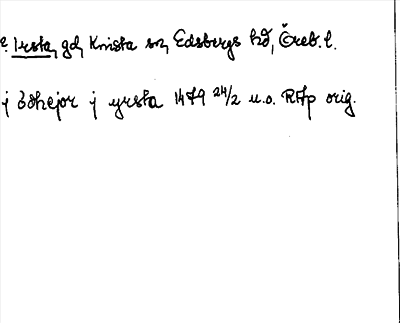 Irsta, gd, Knista sn, Edsbergs hd, Öreb. l.
j ödhejor j yrsta 1479 24/2 u.o. RAp orig.